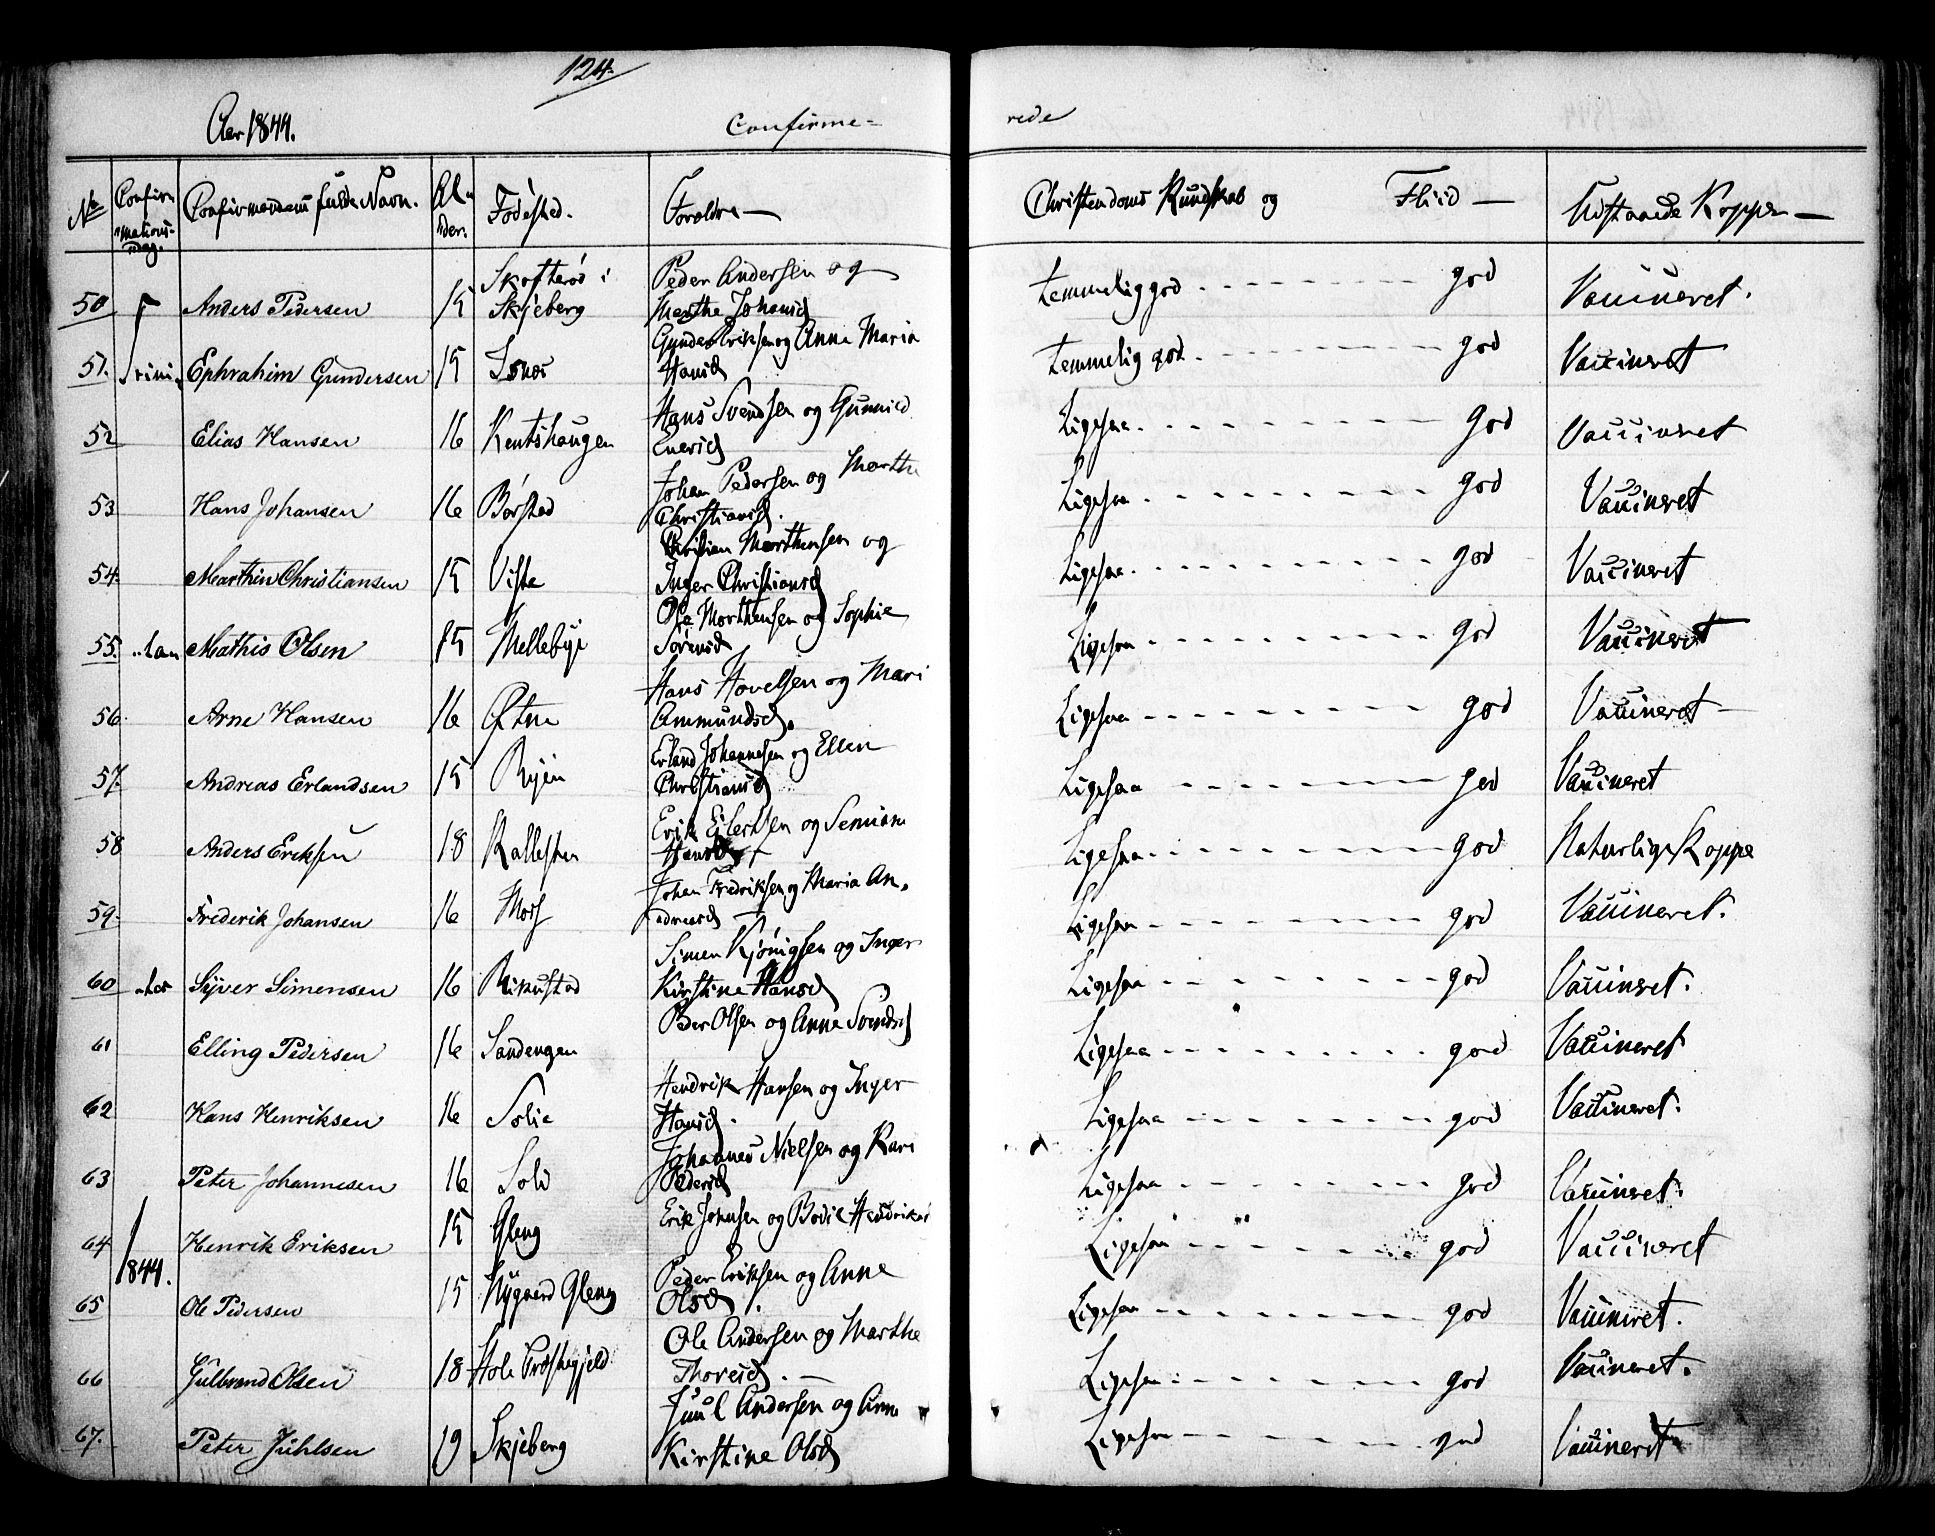 124.
Aar 1844. Confirme= rede
No Confir- mations- dag. Confirmandens fulde Navn. Al- der. Fødested. Forældre — Christendoms Kundskab og Flid — Udstaaede Kopper —
50 Anders Pedersen 15 Skofterød i Skjeberg Peder Andersen og Marthe Johansd temmelig god god Vaccineret.
51. Trini- Ephrahim Gundersen 15 Isnes Gunder Eriksen og Anne Maria Hansd temmelig god god Vaccineret
52 Elias Hansen 16 Hans Svendsen og Gunnild Enersd Ligesaa god Vaccineret
53 Hans Johansen 16 Børstad Johan Pedersen og Marthe Christiansd. Ligesaa god Vaccineret
54. Marthin Christiansen 15 Viste Christian Marthinsen og Inger Christiansd Ligesaa god Vaccineret
55. Mathis Olsen 15 Mellebye Ole Morthensen og Sophie Sørensd Ligesaa god Vaccineret
56. Arne Hansen 16 Østne Hans Hovelsen og Mari Ammundsd. Ligesaa god Vaccineret
57. Andreas Erlandsen 15 Ryen Erland Johannesen og Ellen Christiansd Ligesaa god Vaccineret
58 Anders Eriksen 18 Kallesten Erik Eilertsen og Hansd Ligesaa god Naturlige Kopper
59. Frederik Johansen 16 Moss Johan Fredriksen og Maria An- dreasd Ligesaa god Vaccineret.
60 Syver Simensen 16 Rikustad Simen og Inger Kirstine Hansd Ligesaa god Vaccineret.
61 Elling Pedersen 16 Sandengen Peder Olsen og Anne Svendsd Ligesaa god Vaccineret
62 Hans Henriksen 16 Solie Hendrik Hansen og Inger Hansd. Ligesaa god Vaccineret.
63 Peter Johannesen 16 Soli Johannes Nielsen og Kari Pedersd Ligesaa god Vaccineret.
64 1844. Henrik Eriksen 15 Gleng Erik Johnsen og Bodil Hendriksd Ligesaa god Vaccineret
65 Ole Pedersen 15 Nygaard Gleng Peder Eriksen og Anne Olsd. Ligesaa god Vaccineret.
66 Gulbrand Olsen 18 Hole Præstegjeld Ole Andersen og Marthe Thoresd. — Ligesaa god Vaccineret.
67. Peter Juhlsen 19 Skjeberg Juul Andersen og Anne Kirstine Olsd Ligesaa god Vaccineret